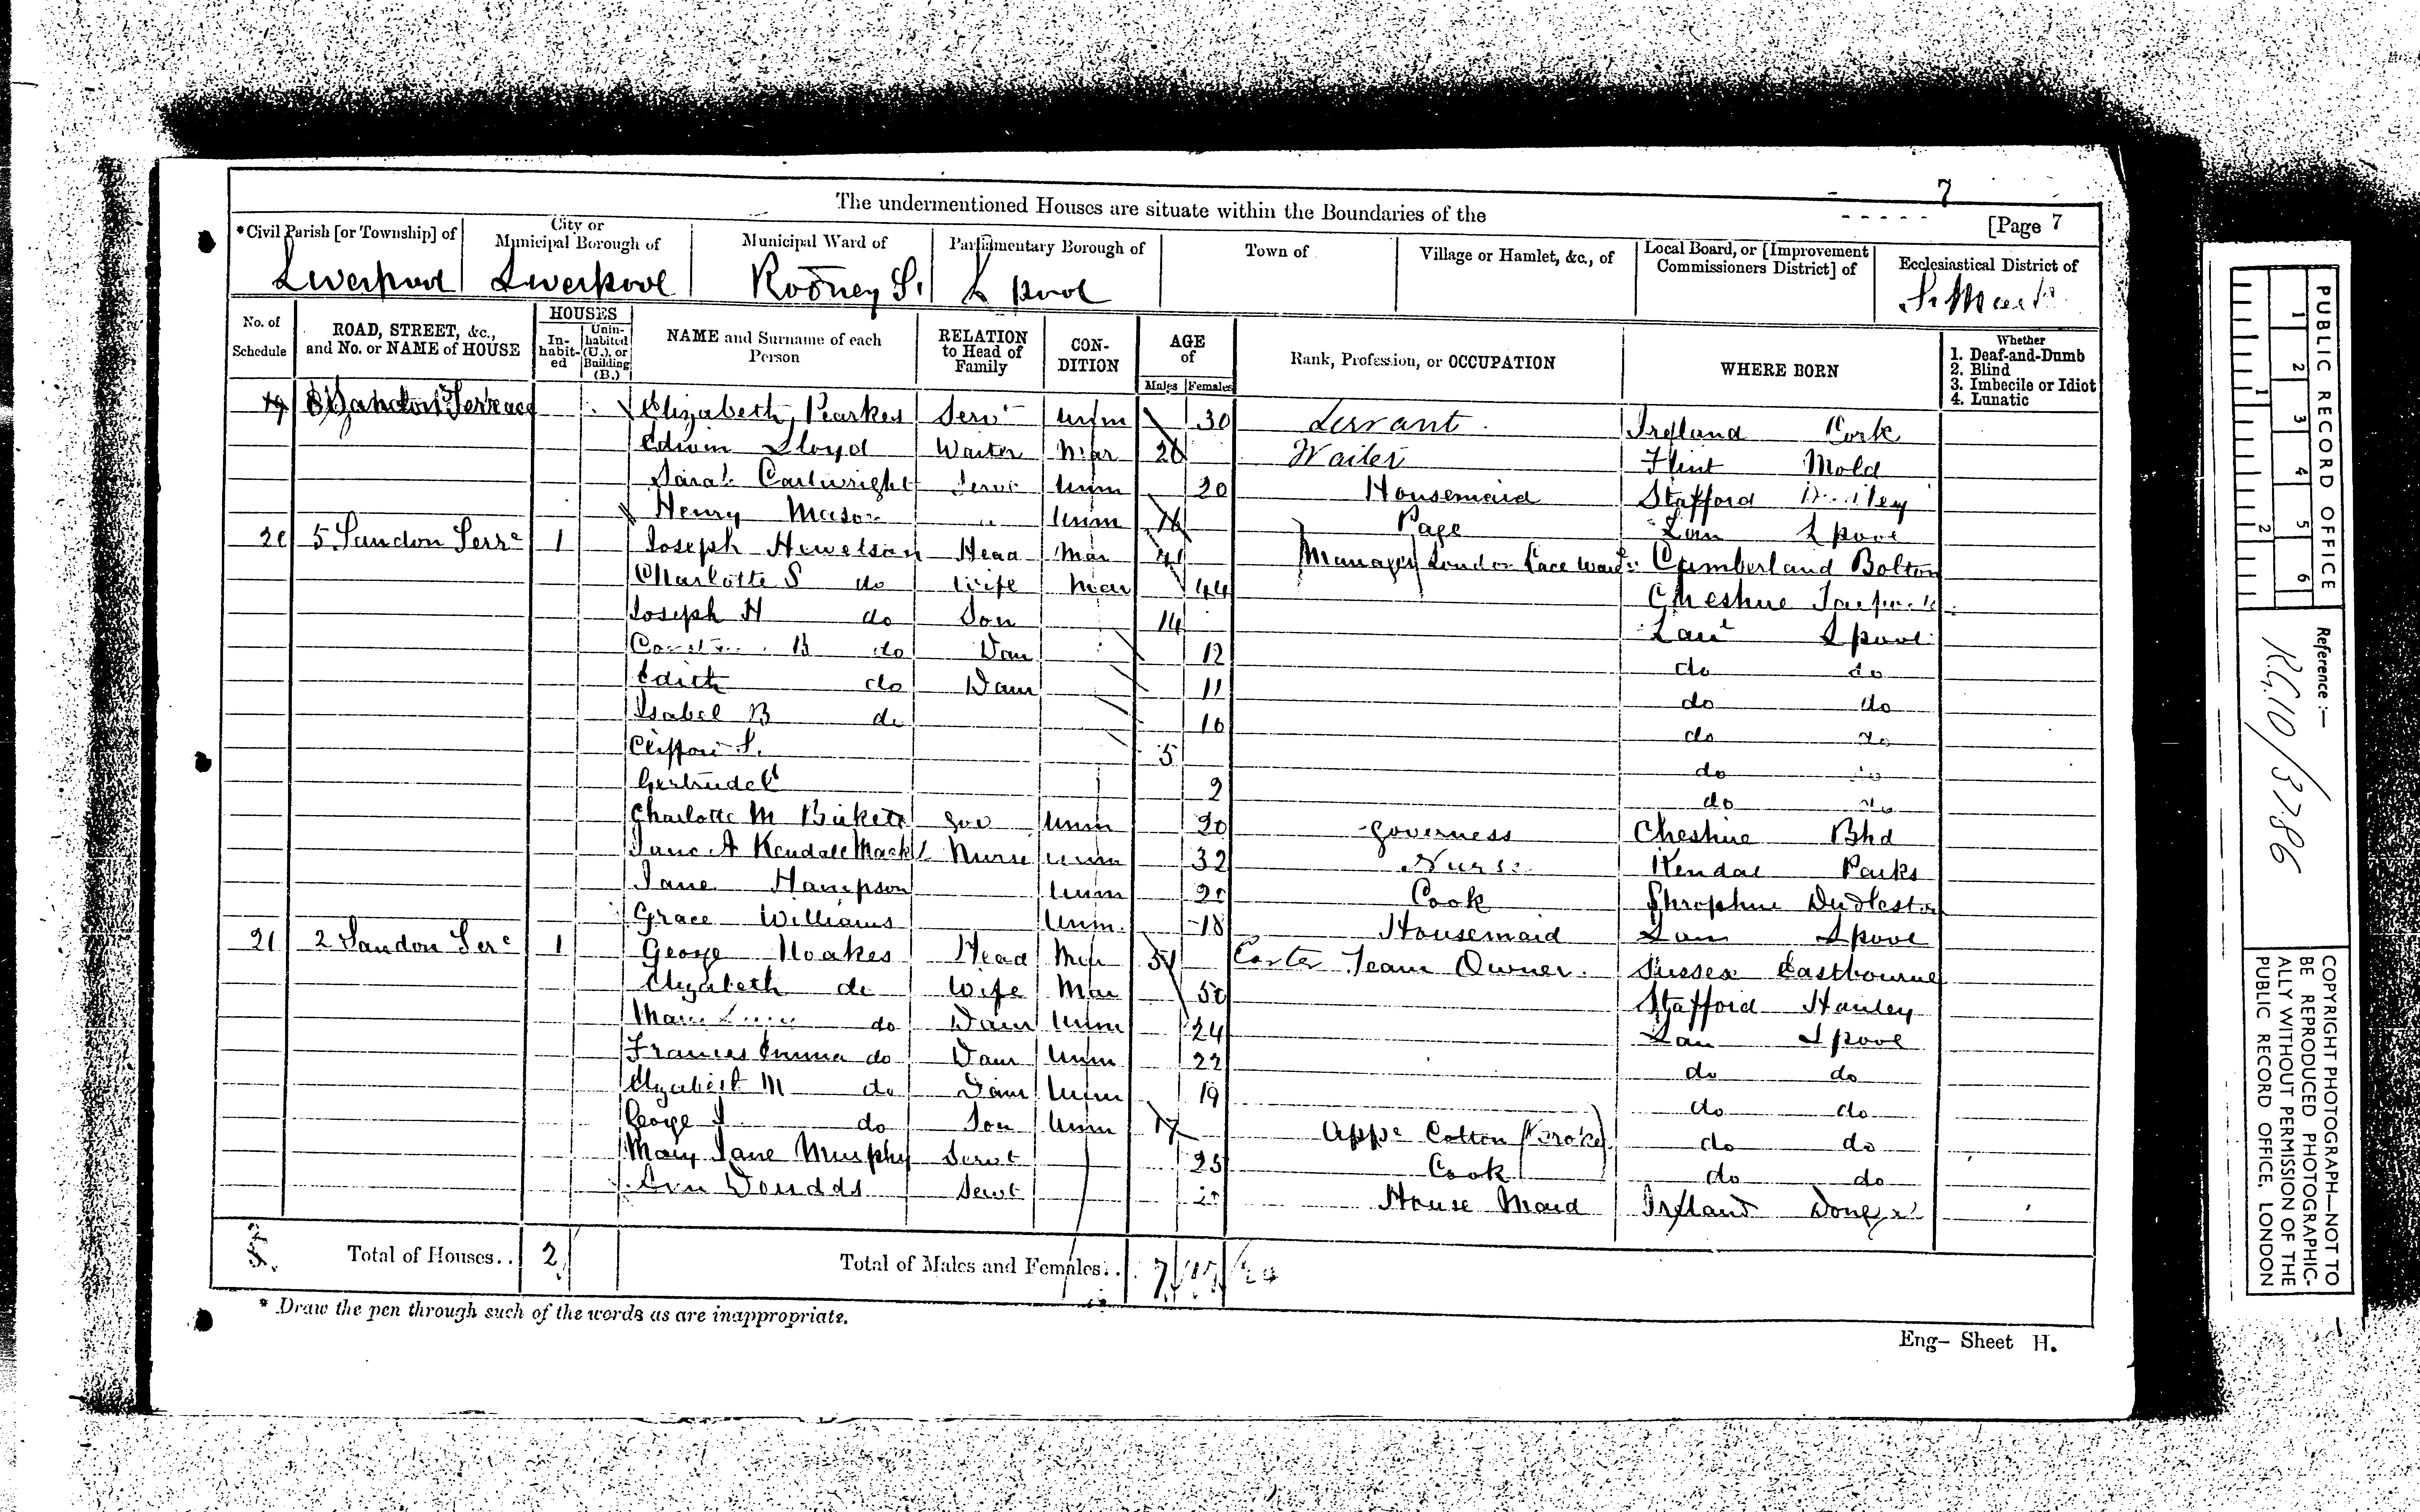 7
The undermentioned Houses are situate within the Boundaries of the
[Page 7
*Civil Parish [or Township] of
City or Municipal Borough of
Municipal Ward of
Parliamentary Borough of
Town of
Village or Hamlet, &c., of
Local Board, or [Improvement Commissioners District] of
Ecclesiastical District of
Liverpool Liverpool Rodney St. L pool
No. of Schedule
ROAD, STREET, &c., and No. or NAME of HOUSE
HOUSES
In-habit-ed
Unin-habited (U.), or Building (B.)
NAME and Surname of each Person
RELATION to Head of Family
CON-DITION
AGE of
Males Females
Rank, Profession, or OCCUPATION
WHERE BORN
Whether
1. Deaf-and-Dumb
2. Blind
3. Imbecile or Idiot
4. Lunatic
19 Sandon Terrace Elizabeth Pearkes Servt Unm 30 Servant Ireland Cork
Edwin Lloyd Waiter Mar 26 Waiter Flint Mold
Sarah Cartwright Servt Unm 20 Housemaid Stafford
Henry Mason Unm 16 Page Lan Lpool
20 5 Sandon Terrc 1 Joseph Hewetson Head Mar 41 Manager Cumberland Bolton
Charlotte S do Wife Mar 44 Cheshire
Joseph H do Son 14 Lanc Lpool
B do Dau 12 do do
Edith do Daur 11 do do
Isabel B do 10 do do
Clifford S. 5 do do
Gertrude 2 do do
Charlotte M Birkett Gov Unm 20 Governess Cheshire Bhd
Jane A Kendall Nurse Unm 32 Nurse Kendal Parks
Jane Hampson Unm Cook Shropshire Dudleston
Grace Williams Unm. 18 Housemaid Lan Lpool
21 2 Sandon Terc 1 George Noakes Head Mar 51 Carter Team Owner. Sussex Eastbourne
Elizabeth do Wife Mar 50 Stafford Hanley
do Daur Unm 24 Lan Lpool
Frances Emma do Daur Unm 22 do do
Elizabeth M do Daur Unm 19 do do
George do Son Unm 17 Appe Cotton Broker do do
Mary Jane Murphy Servt 25 Cook do do
Servt House Maid Ireland
Total of Houses.. 2
Total of Males and Females.. 7
* Draw the pen through such of the words as are inappropriate.
Eng- Sheet H.
PUBLIC RECORD OFFICE
1 2 3 4 5 6
1 2
Reference :-
RG10/3786
COPYRIGHT PHOTOGRAPH—NOT TO
BE REPRODUCED PHOTOGRAPHIC-
ALLY WITHOUT PERMISSION OF THE
PUBLIC RECORD OFFICE, LONDON